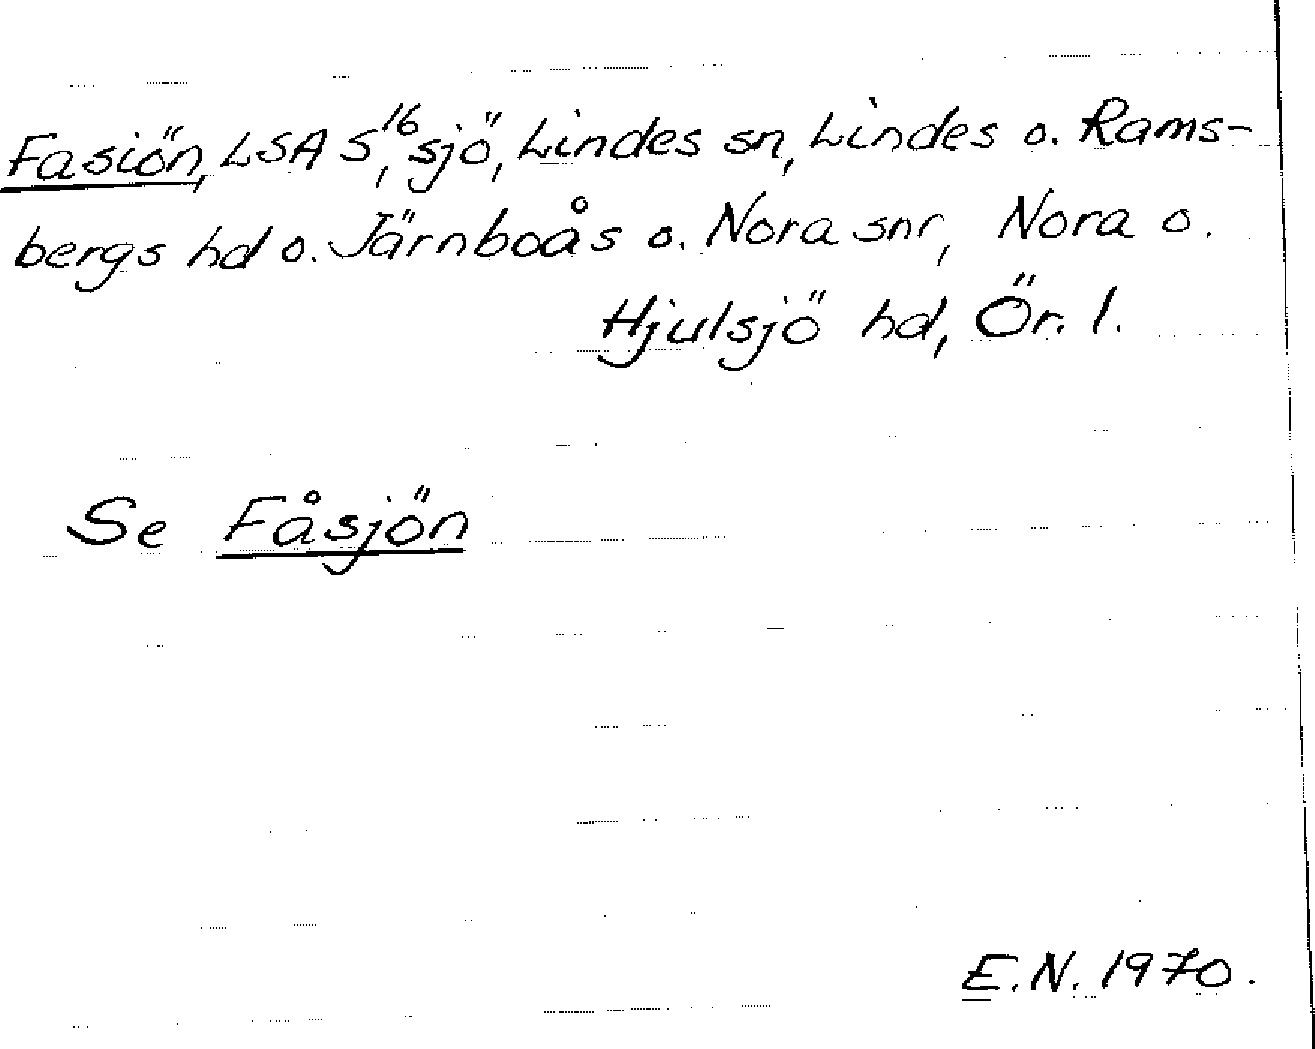 Fasiön, LSA S¹⁶, sjö, Lindes sn, Lindes o. Rams-
bergs hd o. Järnboås o. Nora snr, Nora o.
Hjulsjö hd, Ör. l.
Se Fåsjön
E.N. 1970.